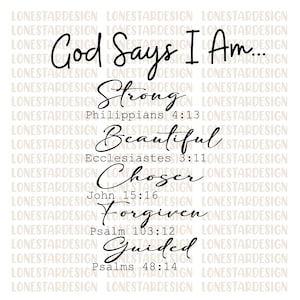 God Says I Am...
Strong
Philippians 4:13
Beautiful
Ecclesiastes 3:11
Chosen
John 15:16
Forgiven
Psalm 103:12
Guided
Psalms 48:14
LONESTARDESIGN